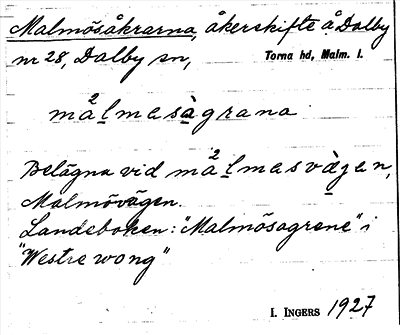 Malmösåkrarna, åkerskifte å Dalby
nr 28, Dalby sn, Torna hd, Malm. l.
må²lmasàgrana
Belägna vid må²lmasvàgen,
Malmövägen.
Landeboken: "Malmösagrene" i
"Westre wong"
I. INGERS 1927